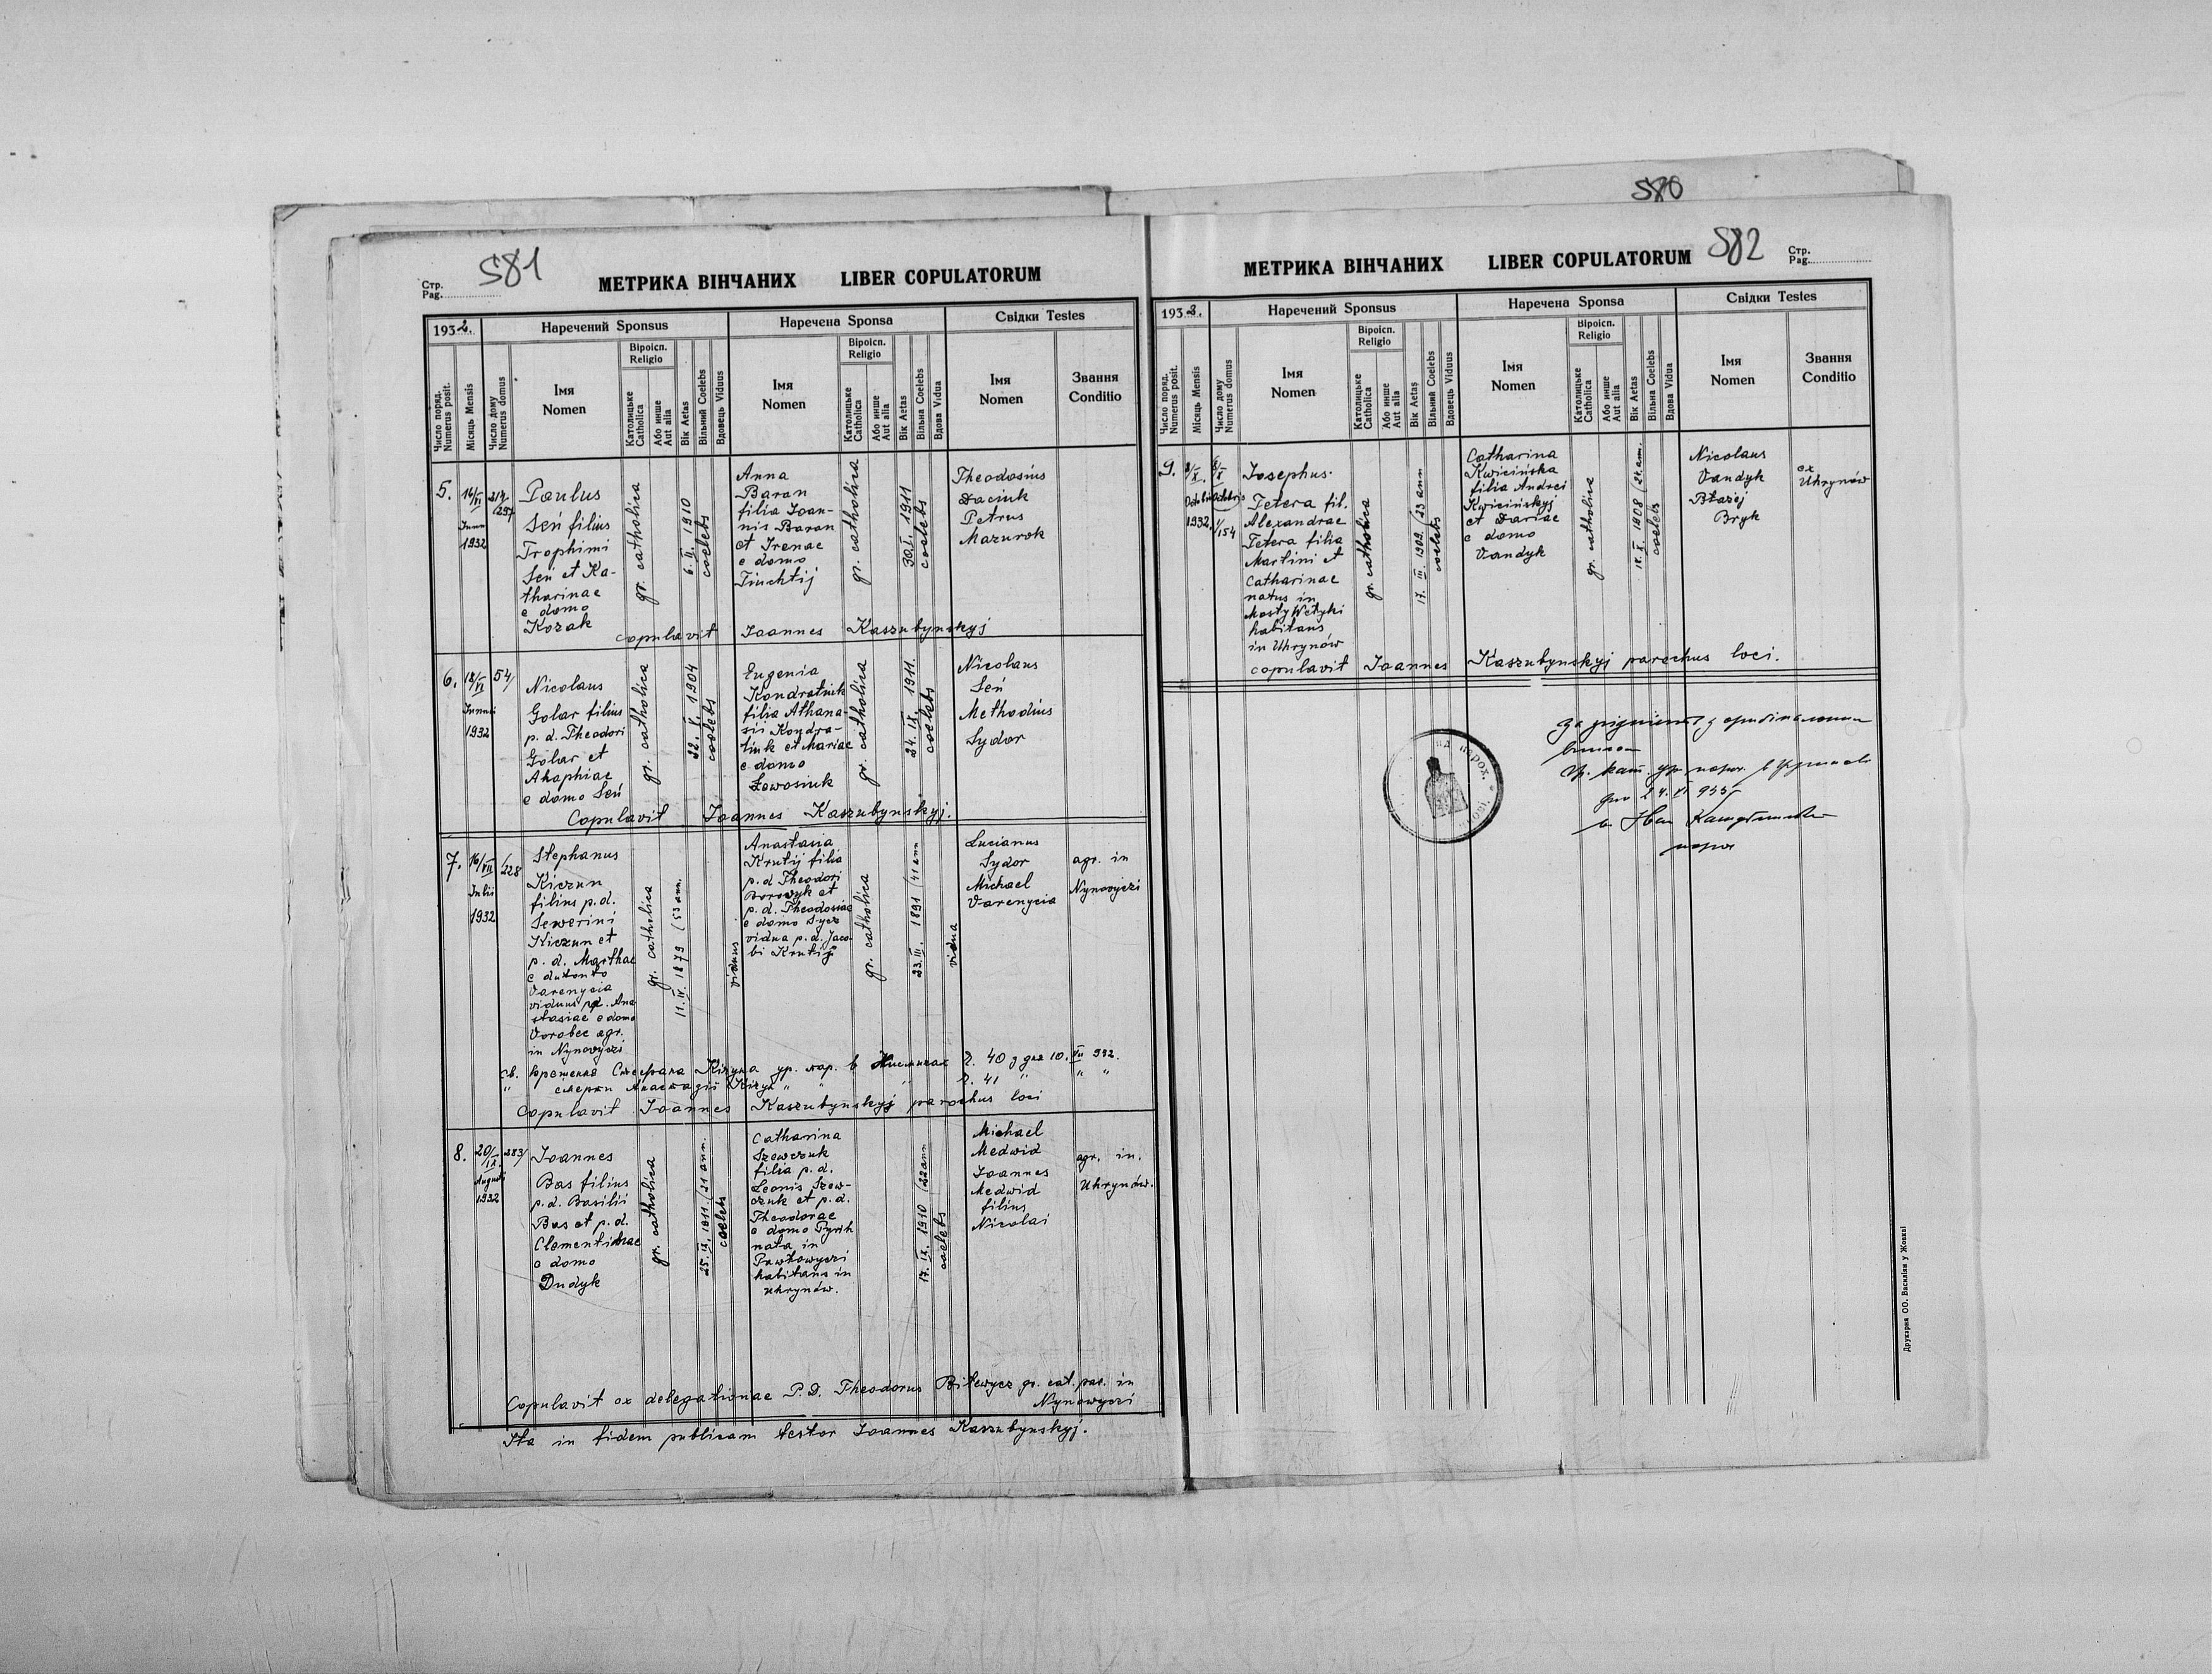 580
581
Стр.
Pag.
МЕТРИКА ВІНЧАНИХ LIBER COPULATORUM
1932.
Наречений Sponsus
Наречена Sponsa
Свідки Testes
Число поряд.
Numerus posit.
Місяць Mensis
Число дому
Numerus domus
Імя
Nomen
Віроісп.
Religio
Католицьке
Catholica
Або инше
Aut alia
Вік Aetas
Вільний Coelebs
Вдовець Viduus
Імя
Nomen
Віроісп.
Religio
Католицьке
Catholica
Або инше
Aut alia
Вік Aetas
Вільна Coelebs
Вдова Vidua
Імя
Nomen
Звання
Conditio
5.
16/VI
1932
Paulus
Seń filius
Trophimi
Seń et Ka-
tharinae
e domo
Kozak
gr. catholica
6. II. 1910
coelebs
Anna
Baran
filia Joan-
nis Baran
et Irenae
e domo
gr. catholica
30. I. 1911
coelebs
Theodosius
Daciuk
Petrus
Mazurok
copulavit Joannes Kaszubynskyj
6.
18/VI
1932
54/
Nicolaus
Golar filius
p. d. Theodori
Golar et
Ahaphiae
e domo Seń
gr. catholica
22. V. 1904
coelebs
Eugenia
Kondratiuk
filia Athana-
sii Kondra-
tiuk et Mariae
e domo
Lewosiuk
gr. catholica
24. IX. 1911.
coelebs
Nicolaus
Seń
Methodius
Sydor
Copulavit Joannes Kaszubynskyj.
7.
16/VII
Julii
1932
/228
Stephanus
Kiczun
filius p.d.
Sewerini
Kiczun et
p. d. Marthae
Varenycia
viduus p.d. Ana-
stasiae e domo
Vorobec agr.
in Nynowyczi
gr. catholica
11. IV. 1879 (53 ann.
viduus
Anastasia
Krutij filia
p. d Theodori
Borowyk et
p. d. Theodosiae
e domo Sycz
vidua p. d. Jaco-
bi Krutij
gr. catholica
23. III. 1891 (41 ann
vidua
Lucianus
Sydor
Michael
Varenycia
agr. in
Nynowyczi
св. крещення Стефана Кічуна ур. пар. в ч. 40 з дня 10. VII 932.
" смерти Анастазії Кічун " " " ч. 41 " " "
Copulavit Joannes Kaszubynskyj parochus loci
8.
20/IX.
Augusti
1932
283/
Joannes
Bas filius
p. d. Basilii
Bas et p. d.
Clementinae
e domo
Dudyk
gr. catholica
25. IX. 1911. (21 ann.
coelebs
Catharina
Szewczuk
filia p. d.
Leonis Szew-
czuk et p. d.
Theodorae
e domo Pyrih
nata in
Pawłowyczi
habitans in
Uhrynów.
17. IX. 1910 (22 ann
coelebs
Michael
Medwid
Joannes
Medwid
filius
Nicolai
agr. in.
Uhrynów.
Copulavit ex delegationae P. D. Theodorus Bilewycz gr. cat. par. in
Nynowyczi
Ita in fidem publicam testor Joannes Kaszubynskyj.
МЕТРИКА ВІНЧАНИХ LIBER COPULATORUM
582
Стр.
Pag.
1932.
Наречений Sponsus
Наречена Sponsa
Свідки Testes
Число поряд.
Numerus posit.
Місяць Mensis
Число дому
Numerus domus
Імя
Nomen
Віроісп.
Religio
Католицьке
Catholica
Або инше
Aut alia
Вік Aetas
Вільний Coelebs
Вдовець Viduus
Імя
Nomen
Віроісп.
Religio
Католицьке
Catholica
Або инше
Aut alia
Вік Aetas
Вільна Coelebs
Вдова Vidua
Імя
Nomen
Звання
Conditio
9.
8/X.
Octobris
1932.
/154
Josephus
Tetera fil.
Alexandrae
Tetera filia
Martini et
Catharinae
natus in
Mosty Wełyki
habitans
in Uhrynów
gr. catholica
17. III. 1909. (23 ann
coelebs
Catharina
Kwicińska
filia Andrei
Kwicińskyj
et Dariae
e domo
Vandyk
gr. catholica
1908 (24. ann.
coelebs
Nicolaus
Vandyk
Błażej
Bryk
ex
Uhrynów
copulavit Joannes Kaszubynskyj parochus loci.
за згідність з оригіналом
Гр. кат. ур. парох. в Угринові
дня 24. VI 935
о. Іван Кашубинський
парох
Друкарня ОО. Василіян у Жовкві